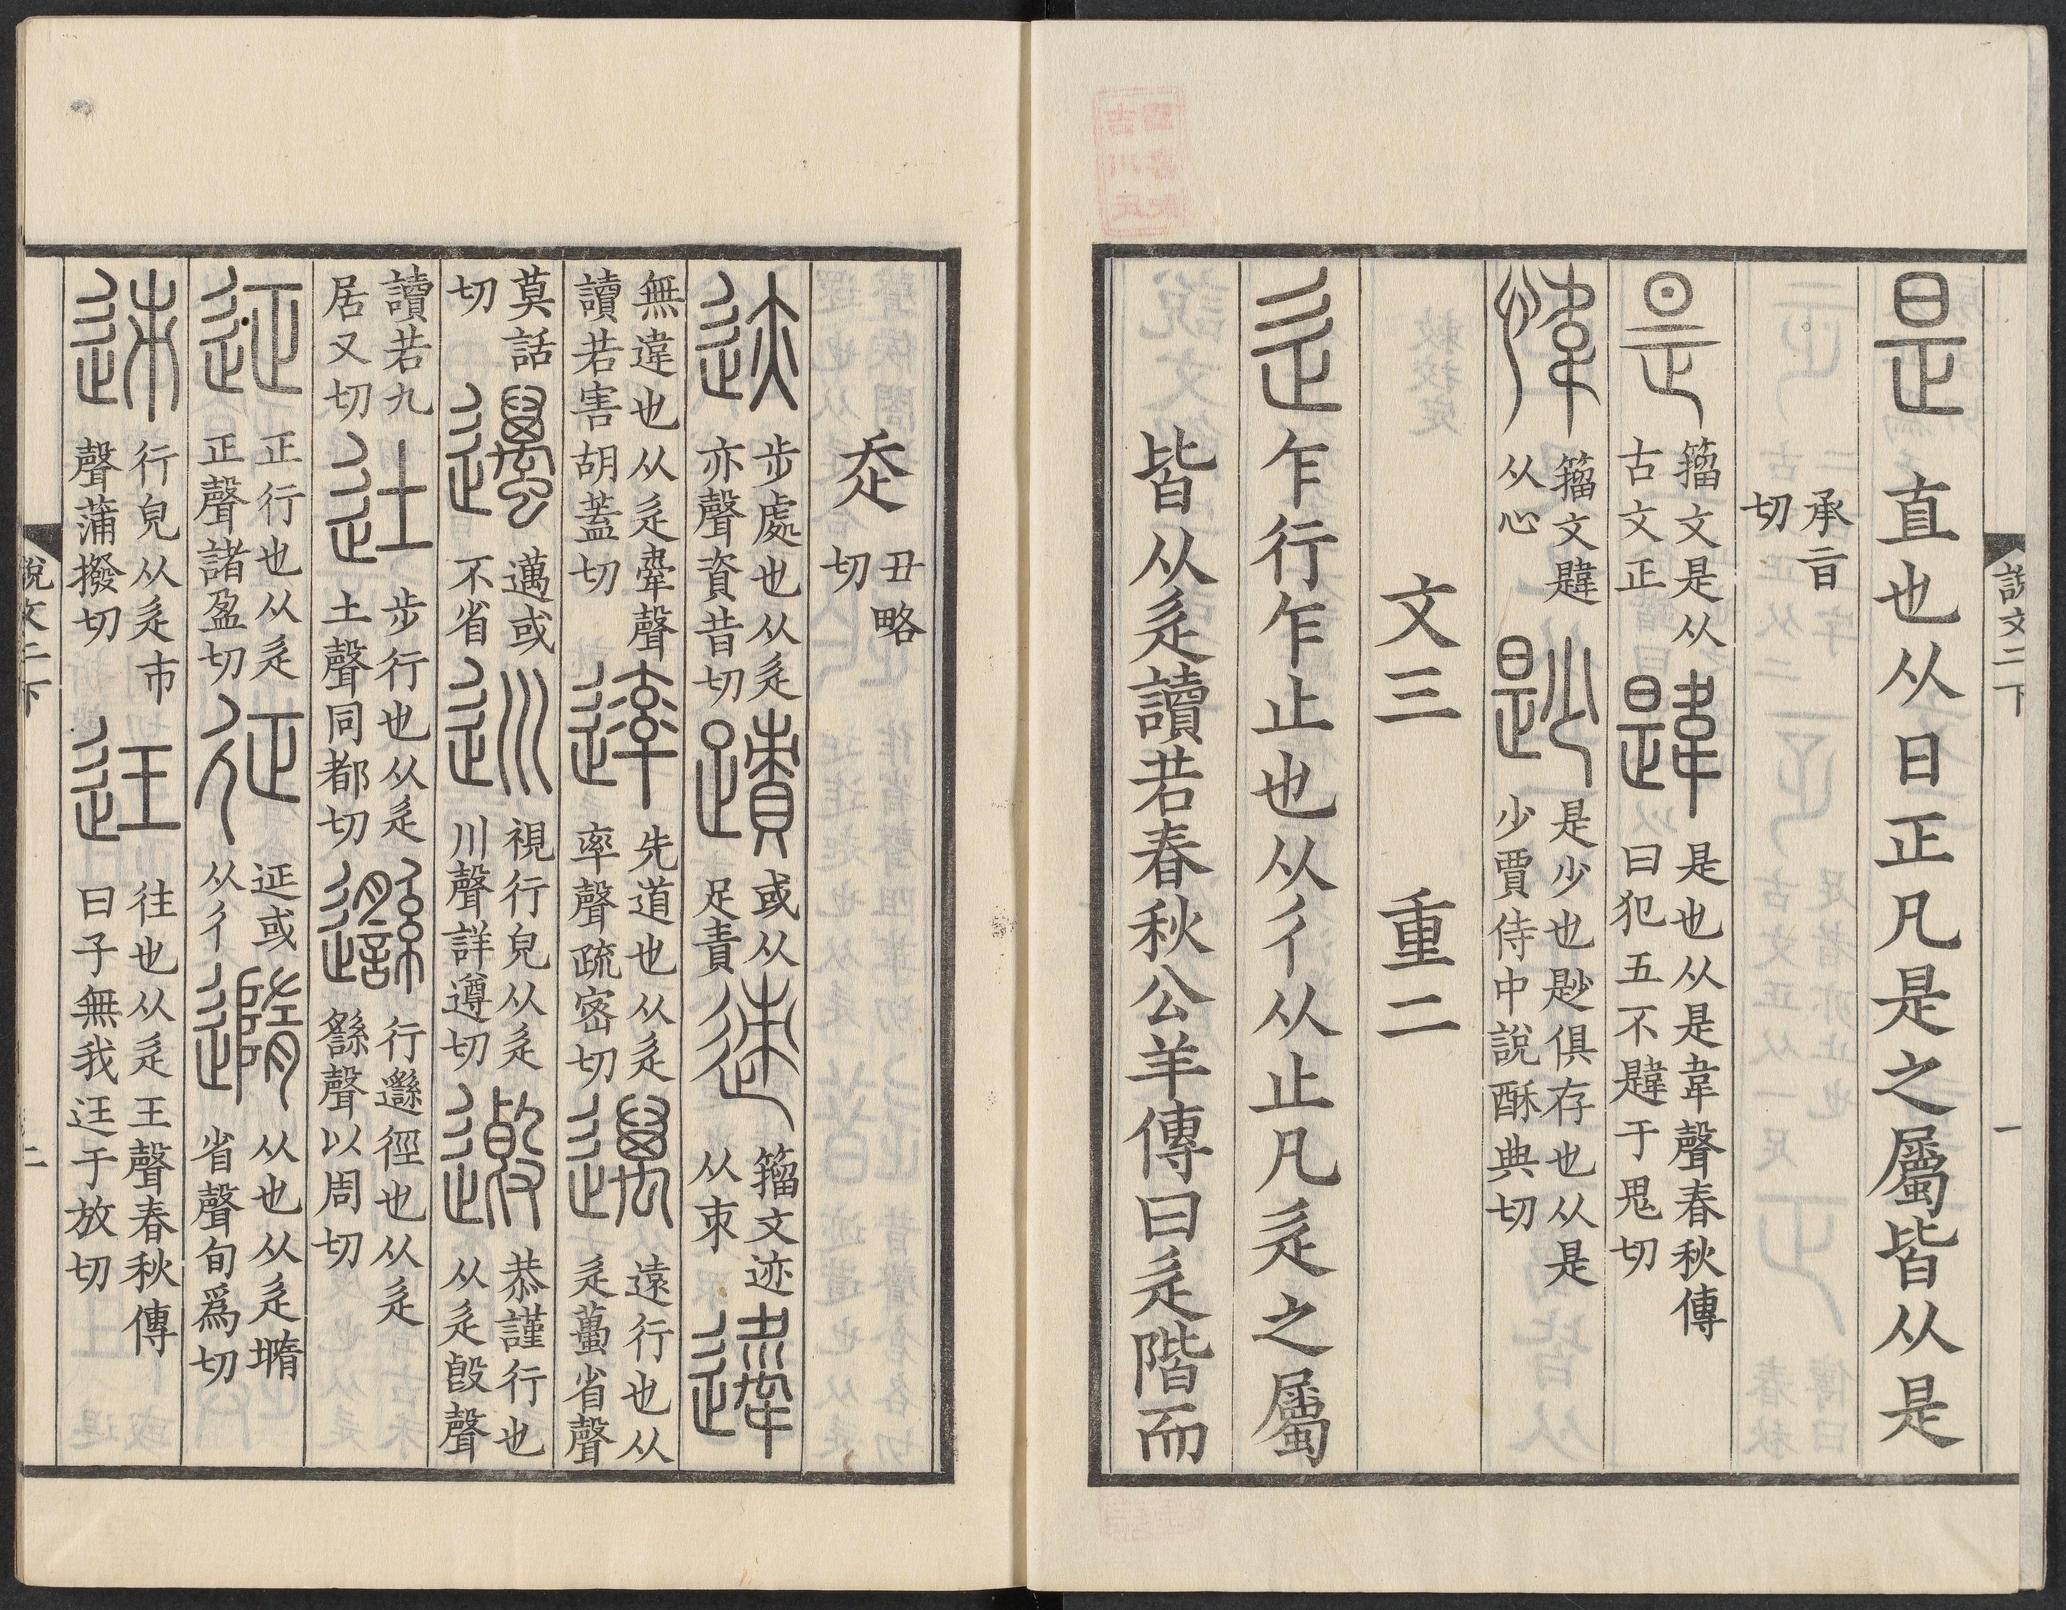 是 直也从日正凡是之屬皆从是
承旨切
昰 籀文是从古文正 韙 是也从是韋聲春秋傳曰犯五不韙于鬼切
愇 籀文韙从心 尟 是少也尟俱存也从是少賈侍中說酥典切
文三 重二
辵 乍行乍止也从彳从止凡辵之屬
皆从辵讀若春秋公羊傳曰辵階而
說文二下
一
辵 丑略切
迹 步處也从辵亦聲資昔切 蹟 或从足責 速 籀文迹从朿 達
無違也从辵舝聲讀若害胡蓋切 達 先道也从辵率聲疏密切 邁 遠行也从辵蠆省聲
莫話切 邁 邁或不省 巡 視行皃从辵川聲詳遵切 恭謹行也从辵㲃聲
讀若九居又切 辻 步行也从辵土聲同都切 邎 行邎徑也从辵䌛聲以周切
延 正行也从辵正聲諸盈切 征 延或从彳 从也从辵墮省聲旬爲切
行皃从辵巿聲蒲撥切 迋 往也从辵王聲春秋傳曰子無我迋于放切
說文二下
二